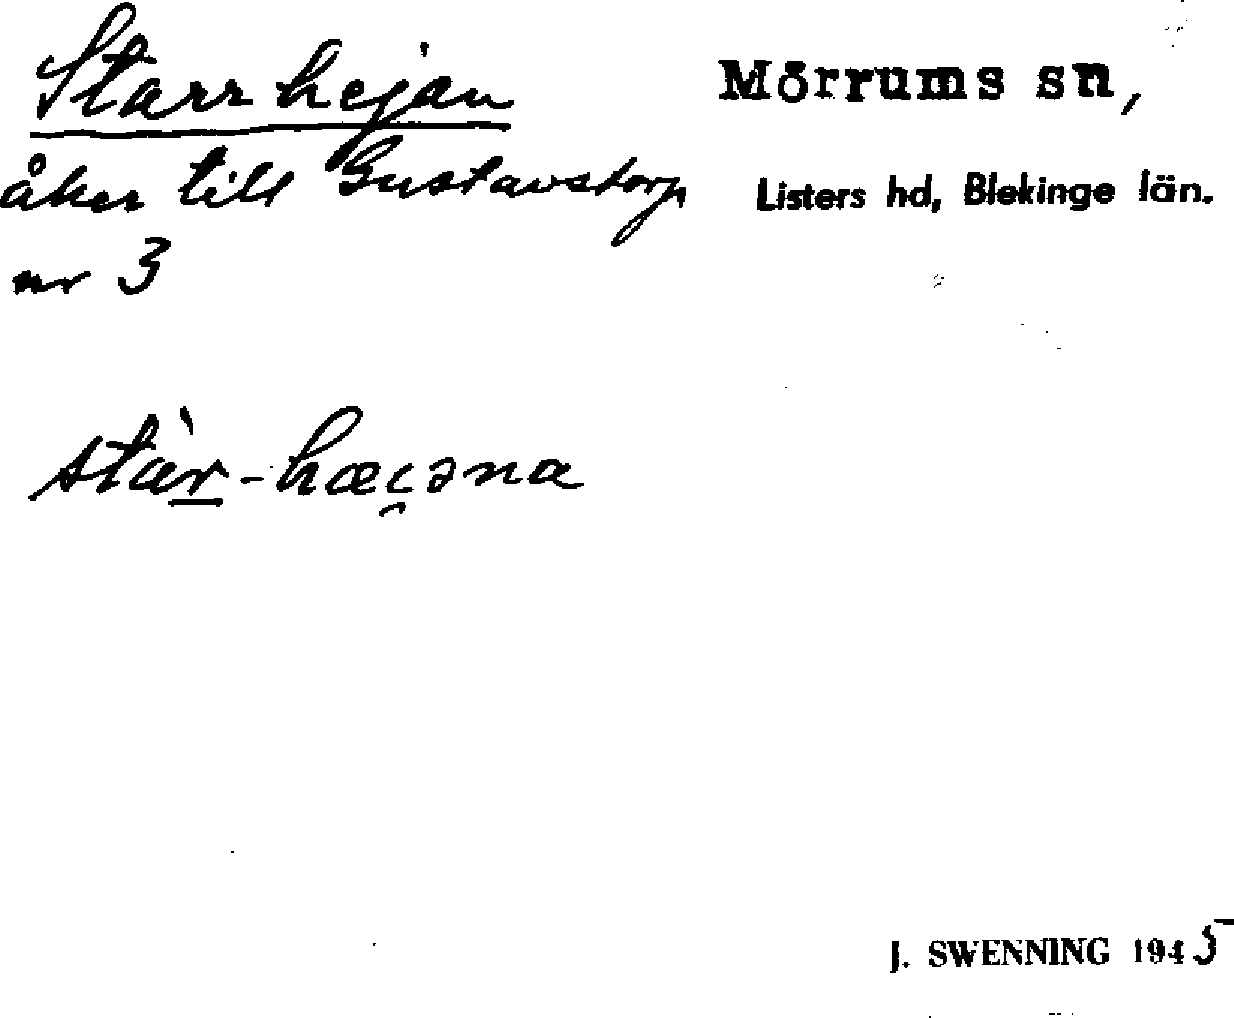 Starrhejan
Mörrums sn,
åker till Gustavstorp
Listers hd, Blekinge län.
nr 3
stàr-hæi̯əna
J. SWENNING 1945